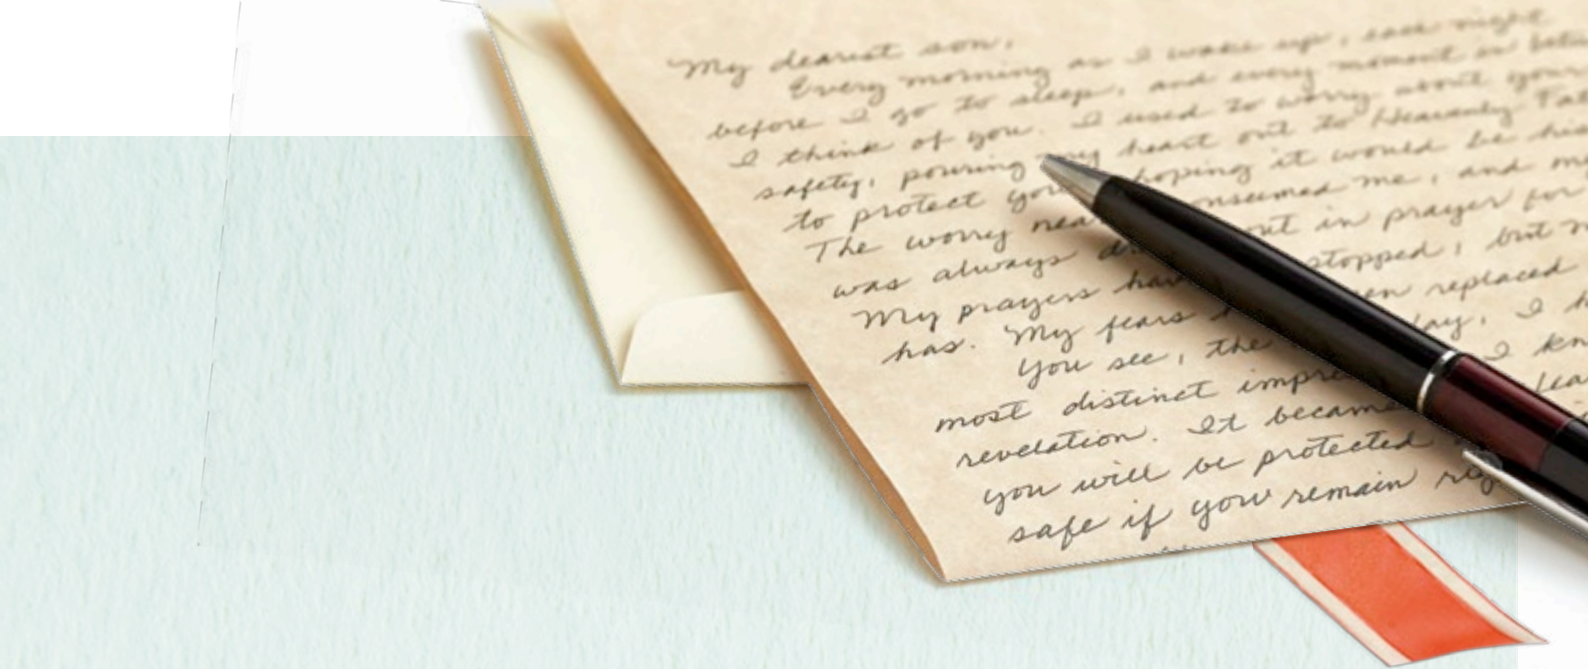 My dearest son,
Every morning as I wake up, each night
before I go to sleep, and every moment in
I think of you. I used to worry about your
safety, pouring my heart out to Heavenly
to protect you hoping it would be his
The worry consumed me, and
was always out in prayer for
My prayers stopped, but
has. My fears replaced
You see, the day, I
most distinct I
revelation. It became
you will be protected
safe if you remain